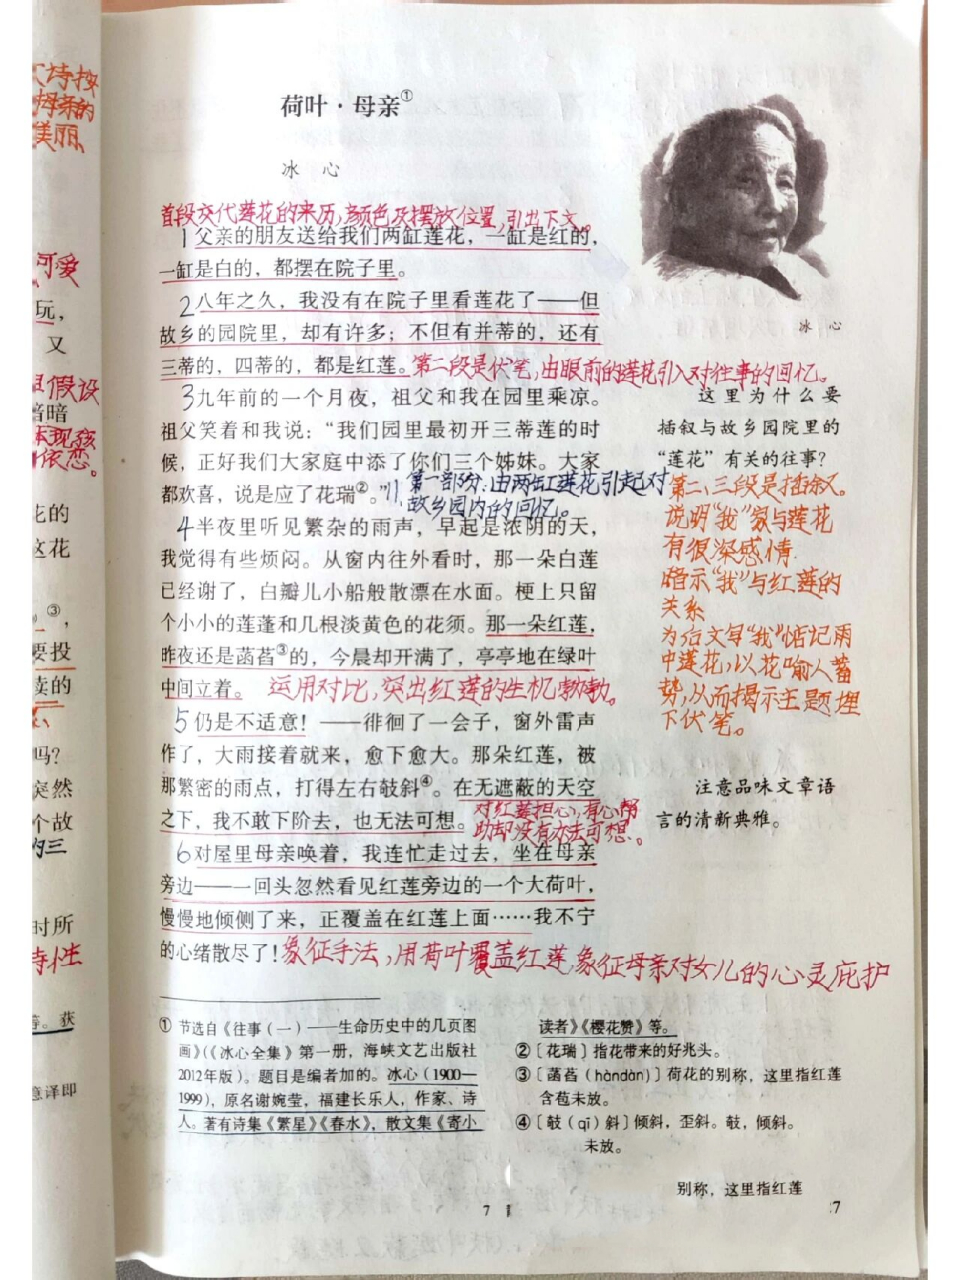 文诗按
母亲的
美丽
可爱
玩，
又
假设
暗暗
体现孩
依恋。
花的
这花
③，
要投
读的
吗？
突然
个故
的三
时所
诗性
等。获
意译即
荷叶·母亲①
冰 心
首段交代莲花的来历，颜色及摆放位置，引出下文。
1父亲的朋友送给我们两缸莲花，一缸是红的，
一缸是白的，都摆在院子里。
2八年之久，我没有在院子里看莲花了——但
故乡的园院里，却有许多；不但有并蒂的，还有
三蒂的，四蒂的，都是红莲。第二段是伏笔，由眼前的莲花引入对往事的回忆。
3九年前的一个月夜，祖父和我在园里乘凉。
祖父笑着和我说：“我们园里最初开三蒂莲的时
候，正好我们大家庭中添了你们三个姊妹。大家
都欢喜，说是应了花瑞②。”//第一部分：由两缸莲花引起对
故乡园内的回忆。
4半夜里听见繁杂的雨声，早起是浓阴的天，
我觉得有些烦闷。从窗内往外看时，那一朵白莲
已经谢了，白瓣儿小船般散漂在水面。梗上只留
个小小的莲蓬和几根淡黄色的花须。那一朵红莲，
昨夜还是菡萏③的，今晨却开满了，亭亭地在绿叶
中间立着。 运用对比，突出红莲的生机勃勃。
5仍是不适意！——徘徊了一会子，窗外雷声
作了，大雨接着就来，愈下愈大。那朵红莲，被
那繁密的雨点，打得左右攲斜④。在无遮蔽的天空
之下，我不敢下阶去，也无法可想。
对红莲担心，有心帮
助却没有办法可想。
6对屋里母亲唤着，我连忙走过去，坐在母亲
旁边——一回头忽然看见红莲旁边的一个大荷叶，
慢慢地倾侧了来，正覆盖在红莲上面……我不宁
的心绪散尽了！象征手法，用荷叶覆盖红莲，象征母亲对女儿的心灵庇护
冰 心
这里为什么要
插叙与故乡园院里的
“莲花”有关的往事？
第二、三段是插叙。
说明“我”家与莲花
有很深感情
暗示“我”与红莲的
关系
为后文写“我”惦记雨
中莲花，以花喻人蓄
势，从而揭示主题埋
下伏笔。
注意品味文章语
言的清新典雅。
① 节选自《往事（一）——生命历史中的几页图
画》（《冰心全集》第一册，海峡文艺出版社
2012年版）。题目是编者加的。冰心（1900—
1999），原名谢婉莹，福建长乐人，作家、诗
人。著有诗集《繁星》《春水》，散文集《寄小
读者》《樱花赞》等。
②〔花瑞〕指花带来的好兆头。
③〔菡萏（hàndàn）〕荷花的别称，这里指红莲
含苞未放。
④〔攲（qī）斜〕倾斜，歪斜。攲，倾斜。
未放。
别称，这里指红莲
7
7